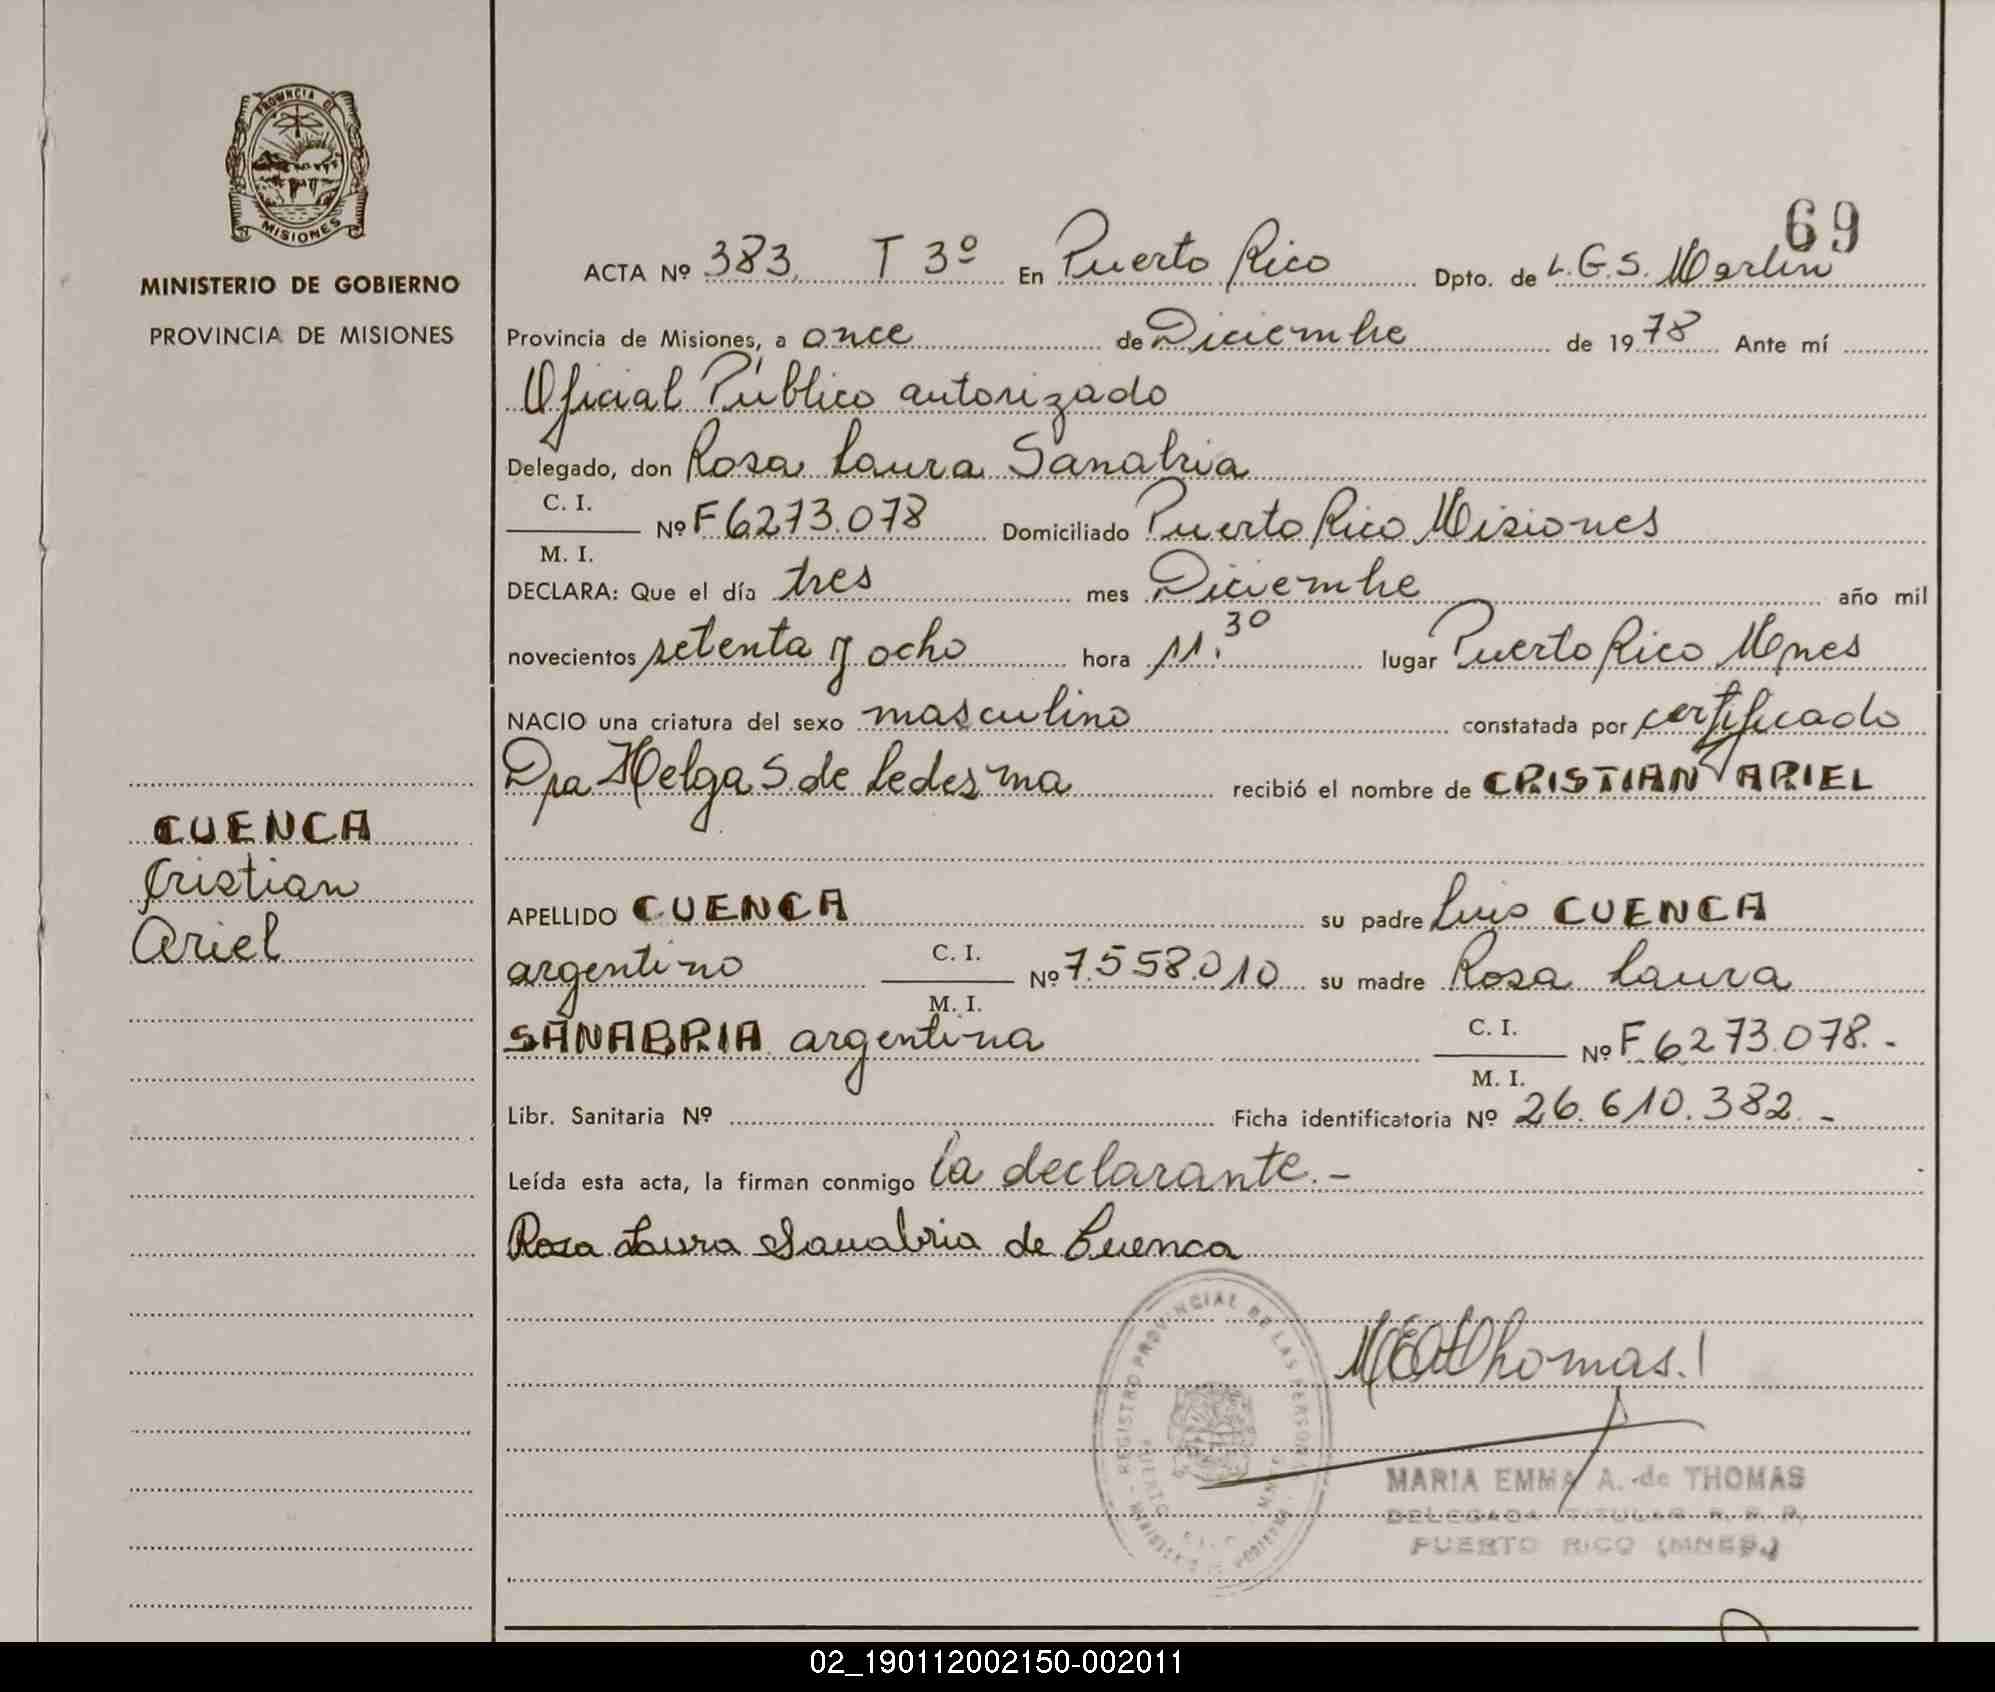 PROVINCIA DE
MISIONES
MINISTERIO DE GOBIERNO
PROVINCIA DE MISIONES
CUENCA
Cristian
Ariel
69
ACTA Nº 383 T 3º En Puerto Rico Dpto. de L.G.S. Martin
Provincia de Misiones, a once de Diciembre de 1978 Ante mí
Oficial Público autorizado
Delegado, don Rosa Laura Sanabria
C. I.
M. I. Nº F 6273.078 Domiciliado Puerto Rico Misiones
DECLARA: Que el día tres mes Diciembre año mil
novecientos setenta y ocho hora 11.30 lugar Puerto Rico Mnes
NACIO una criatura del sexo masculino constatada por certificado
Dra Helga S de Ledesma recibió el nombre de CRISTIAN ARIEL
APELLIDO CUENCA su padre Luis CUENCA
argentino C. I. M. I. Nº 7.558.010 su madre Rosa Laura
SANABRIA argentina C. I. M. I. Nº F 6273.078.-
Libr. Sanitaria Nº Ficha identificatoria Nº 26.610.382.-
Leída esta acta, la firman conmigo la declarante.-
Rosa Laura Sanabria de Cuenca
REGISTRO PROVINCIAL DE LAS PERSONAS
MEAThomas
MARIA EMMA A. de THOMAS
DELEGADA TITULAR R. P. P.
PUERTO RICO (MNES.)
02_190112002150-002011